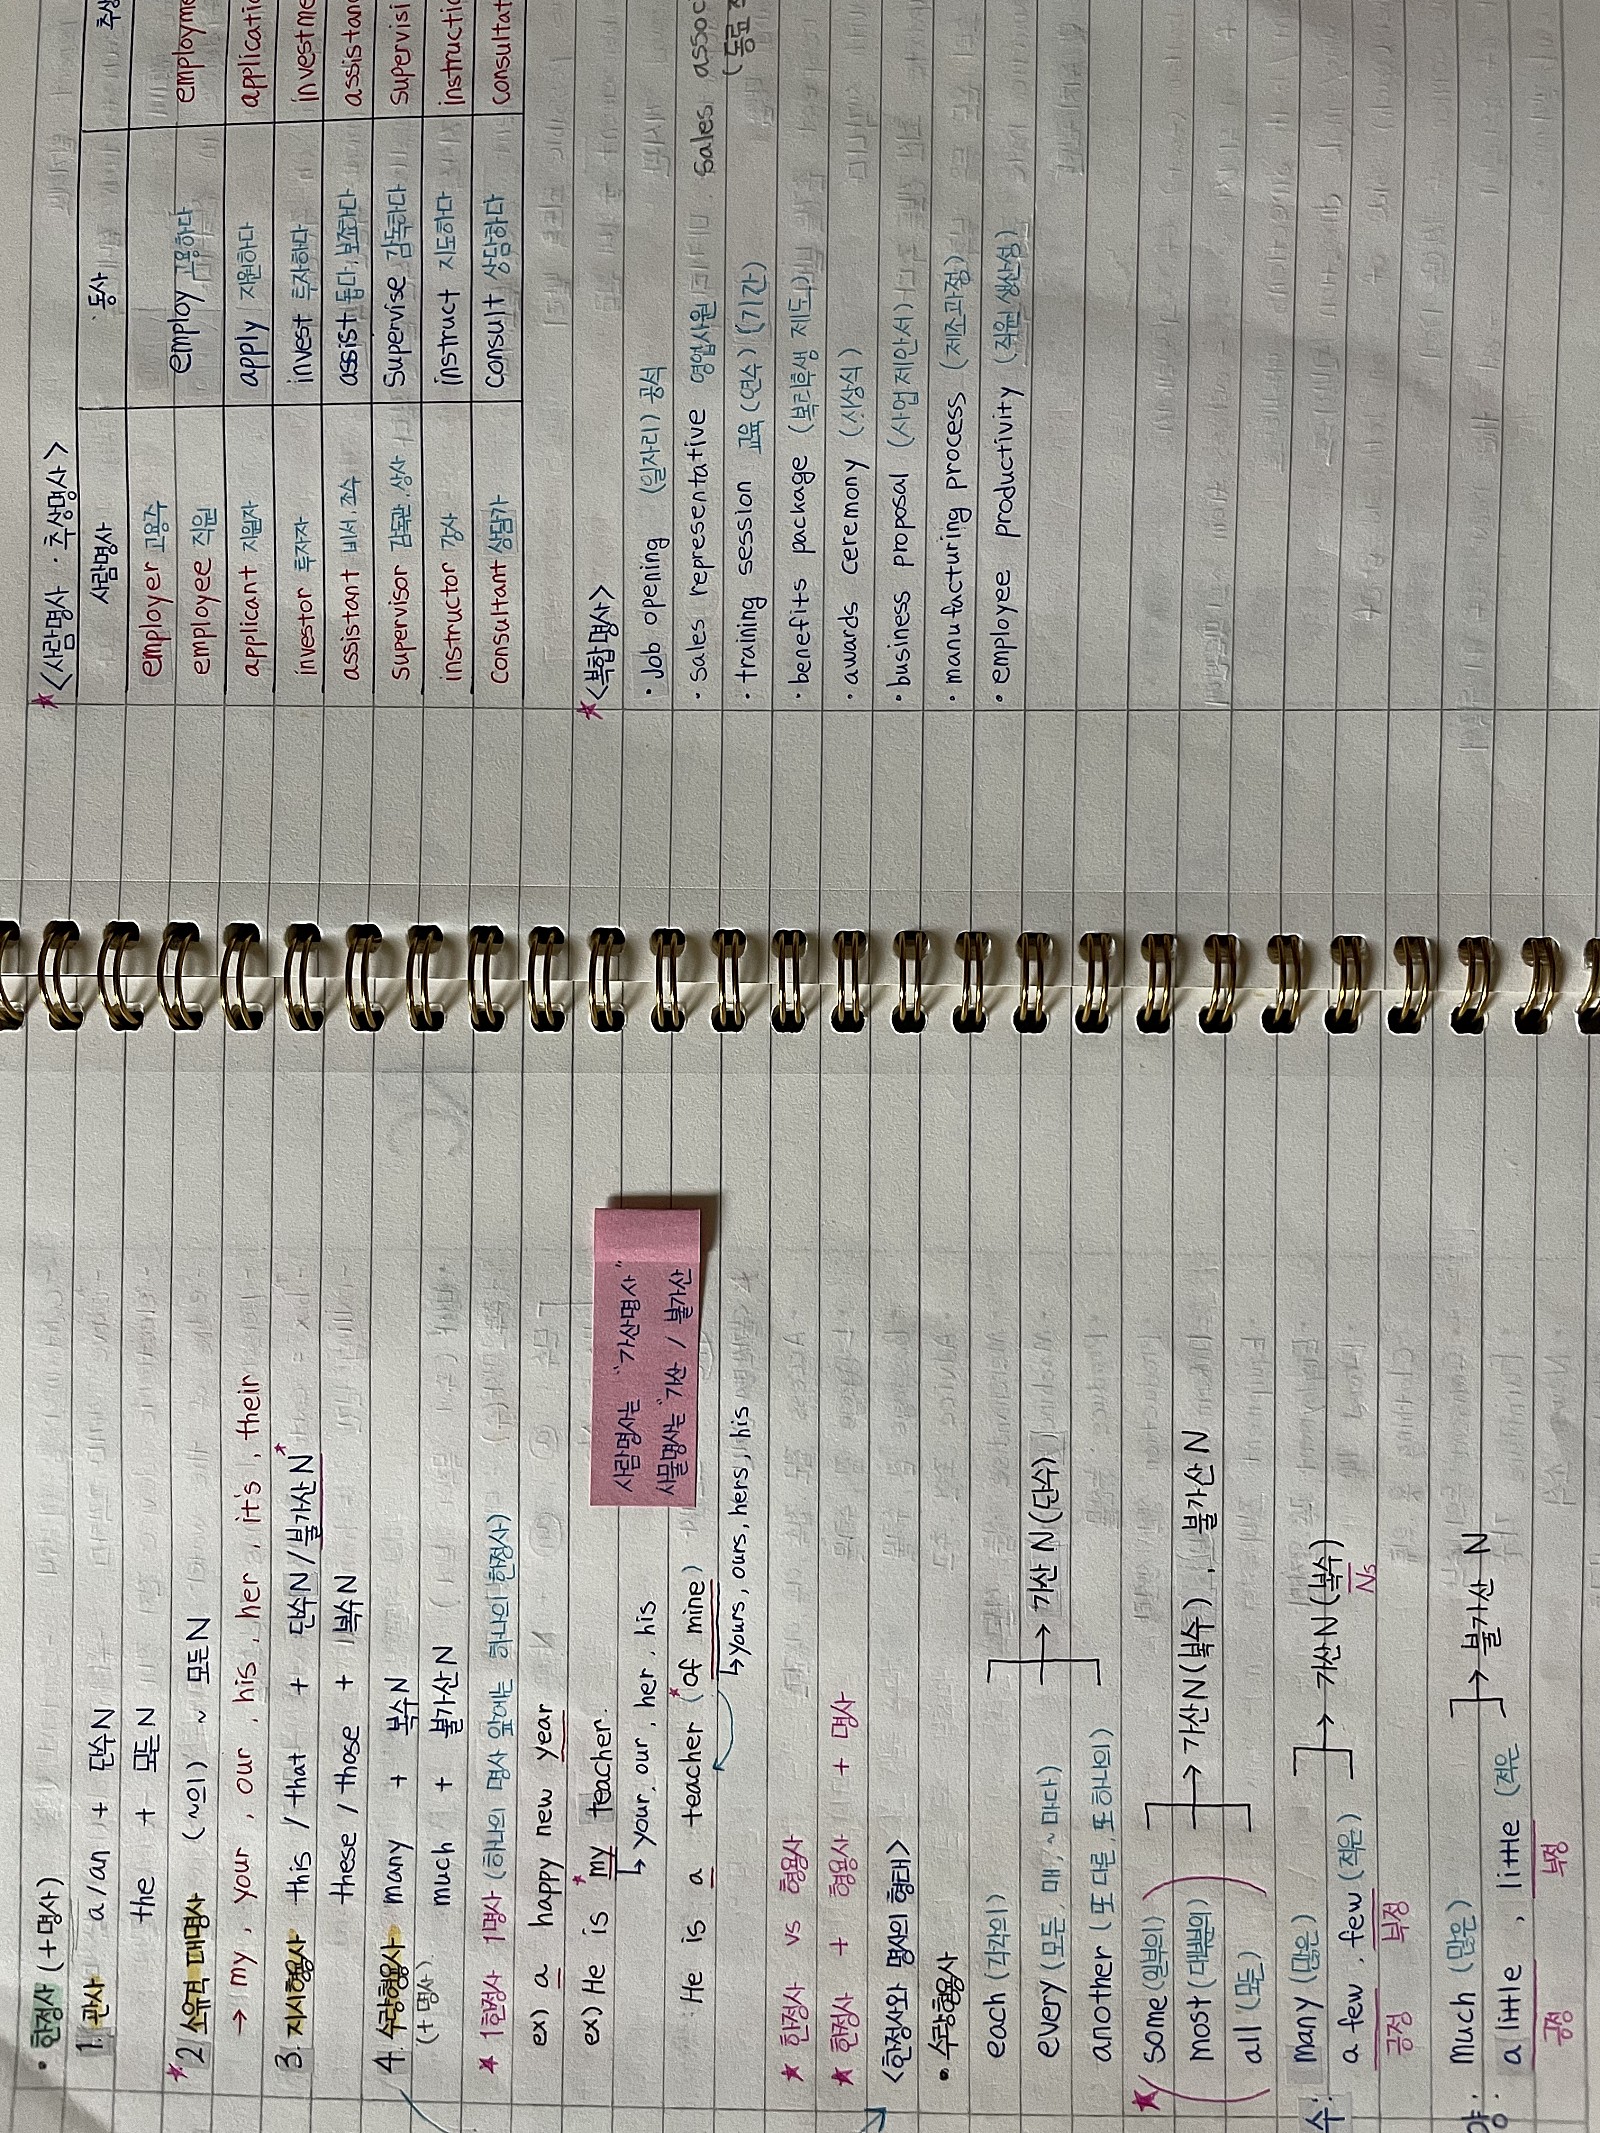 • 한정사 (+명사)
1. 관사 a/an + 단수N
the + 모든N
*2 소유격 대명사 (~의) ~ 모든N
→ my, your, our, his, her, it's, their
3. 지시형용사 this / that + 단수N / 불가산N*
these / those + 복수N
4. 수량형용사 many + 복수N
(+명사) much + 불가산N
★ 1한정사 1명사 (하나의 명사 앞에는 하나의 한정사)
ex) a happy new year
ex) He is *my teacher.
↳ your, our, her, his
He is a teacher (*of mine)
↳ yours, ours, hers, his
사람명사는 "가산명사"
사물명사는 "가산 / 불가산
★ 한정사 vs 형용사
★ 한정사 + 형용사 + 명사
<한정사와 명사의 형태>
• 수량형용사
each (각각의)
every (모든, 매, ~마다) → 가산 N (단수)
another (또 다른, 또 하나의)
★ some (일부의)
most (대부분의) → 가산N (복수), 불가산 N
all (모든)
수: many (많은) → 가산 N (복수)
Ns
a few, few (적은)
긍정 부정
양: much (많은) → 불가산 N
a little, little (적은
긍정 부정
★ <사람명사 · 추상명사>
사람명사 동사
employer 고용주
employee 직원 employ 고용하다
applicant 지원자 apply 지원하다
investor 투자자 invest 투자하다
assistant 비서, 조수 assist 돕다, 보조하다
supervisor 감독관, 상사 supervise 감독하다
instructor 강사 instruct 지도하다
consultant 상담가 consult 상담하다
★ <복합명사>
• Job opening (일자리) 공석
• sales representative 영업사원 sales
• training session 교육 (연수) (기간)
• benefits package (복리후생 제도)
• awards ceremony (시상식)
• business proposal (사업 제안서)
• manufacturing process (제조과정)
• employee productivity (직원 생산성)